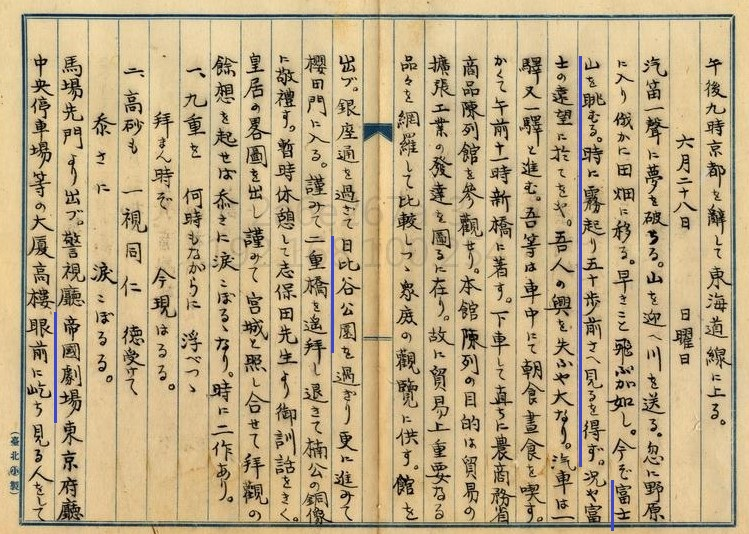 午後九時京都を辭して東海道線に上る。
六月二十八日　日曜日
汽笛一聲に夢を破ちる。山を迎へ川を送る。忽に野原
に入り俄かに田畑に移る。早きこと飛ぶが如し。今ぞ富士
山を眺むる。時に霧起り五十歩前さへ見るを得ず。況や富
士の遠望に於てをや。吾人の興を失ふや大なり。汽車は一
驛又一驛と進む。吾等は車中にて朝食晝食を喫す。
かくて午前十一時新橋に着す。下車して直ちに農商務省
商品陳列館を參觀せり。本館陳列の目的は貿易の
擴張工業の發達を圖るに在り。故に貿易上重要なる
品々を網羅して比較しつゝ衆庶の觀覽に供す。館を
出づ。銀座通を過ぎて日比谷公園を過ぎり更に進みて
櫻田門に入る。謹みて二重橋を遙拜し退きて楠公の銅像
に敬禮す。暫時休憩して志保田先生より御訓話をきく。
皇居の畧圖を出し謹みて宮城と照し合せて拜觀の
餘想を起せば忝さに涙こぼるゝなり。時に二作あり。
一、九重を　何時もながらに　浮べつゝ
拜まん時ぞ　今現はるる。
二、高砂も　一視同仁　德受けて
忝さに　涙こぼるる。
馬場先門より出づ。警視廳帝國劇場東京府廳
中央停車場等の大厦高樓眼前に屹ち見る人をして
(臺北小製)